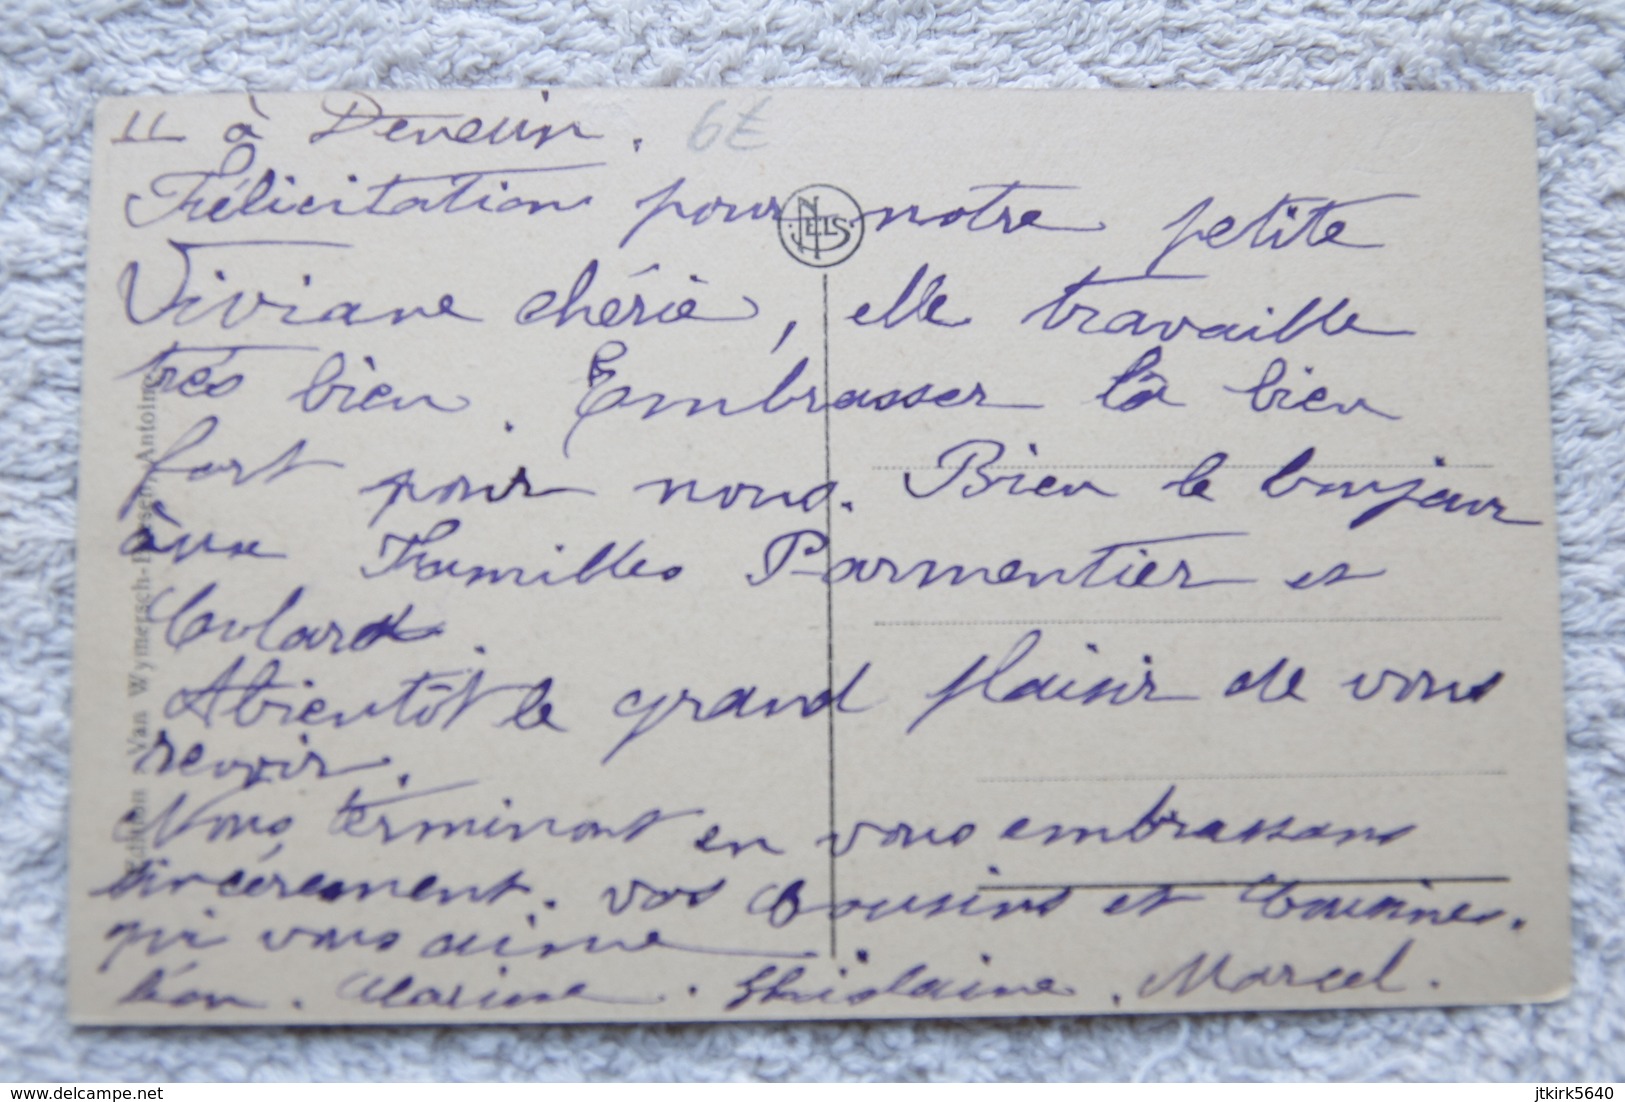 II à Denain.
6€
Félicitation pour notre petite
NELS
Viviane chérie, elle travaille
très bien. Embrasser la bien
fort pour nous. Bien le bonjour
aux Familles Parmentier et
Colard.
Abientôt le grand plaisir de vous
revoir.
Nous terminont en vous embrassans
sincérement. vos Cousins et Cousines.
qui vous aime
Léon. Clarisse. Ghislaine. Marcel.
Edition Van Wymersch- Antoing
www.delcampe.net
jtkirk5640